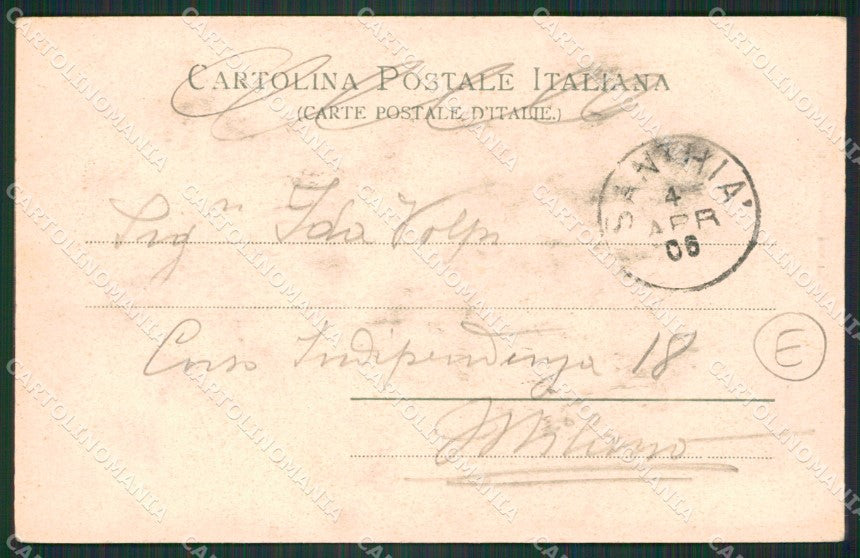 CARTOLINA POSTALE ITALIANA
(CARTE POSTALE D'ITALIE.)
SANTHIA'
4
APR
06
Sigra Ida Volpi
Corso Indipendenza 18
E
Milano
CARTOLINOMANIA